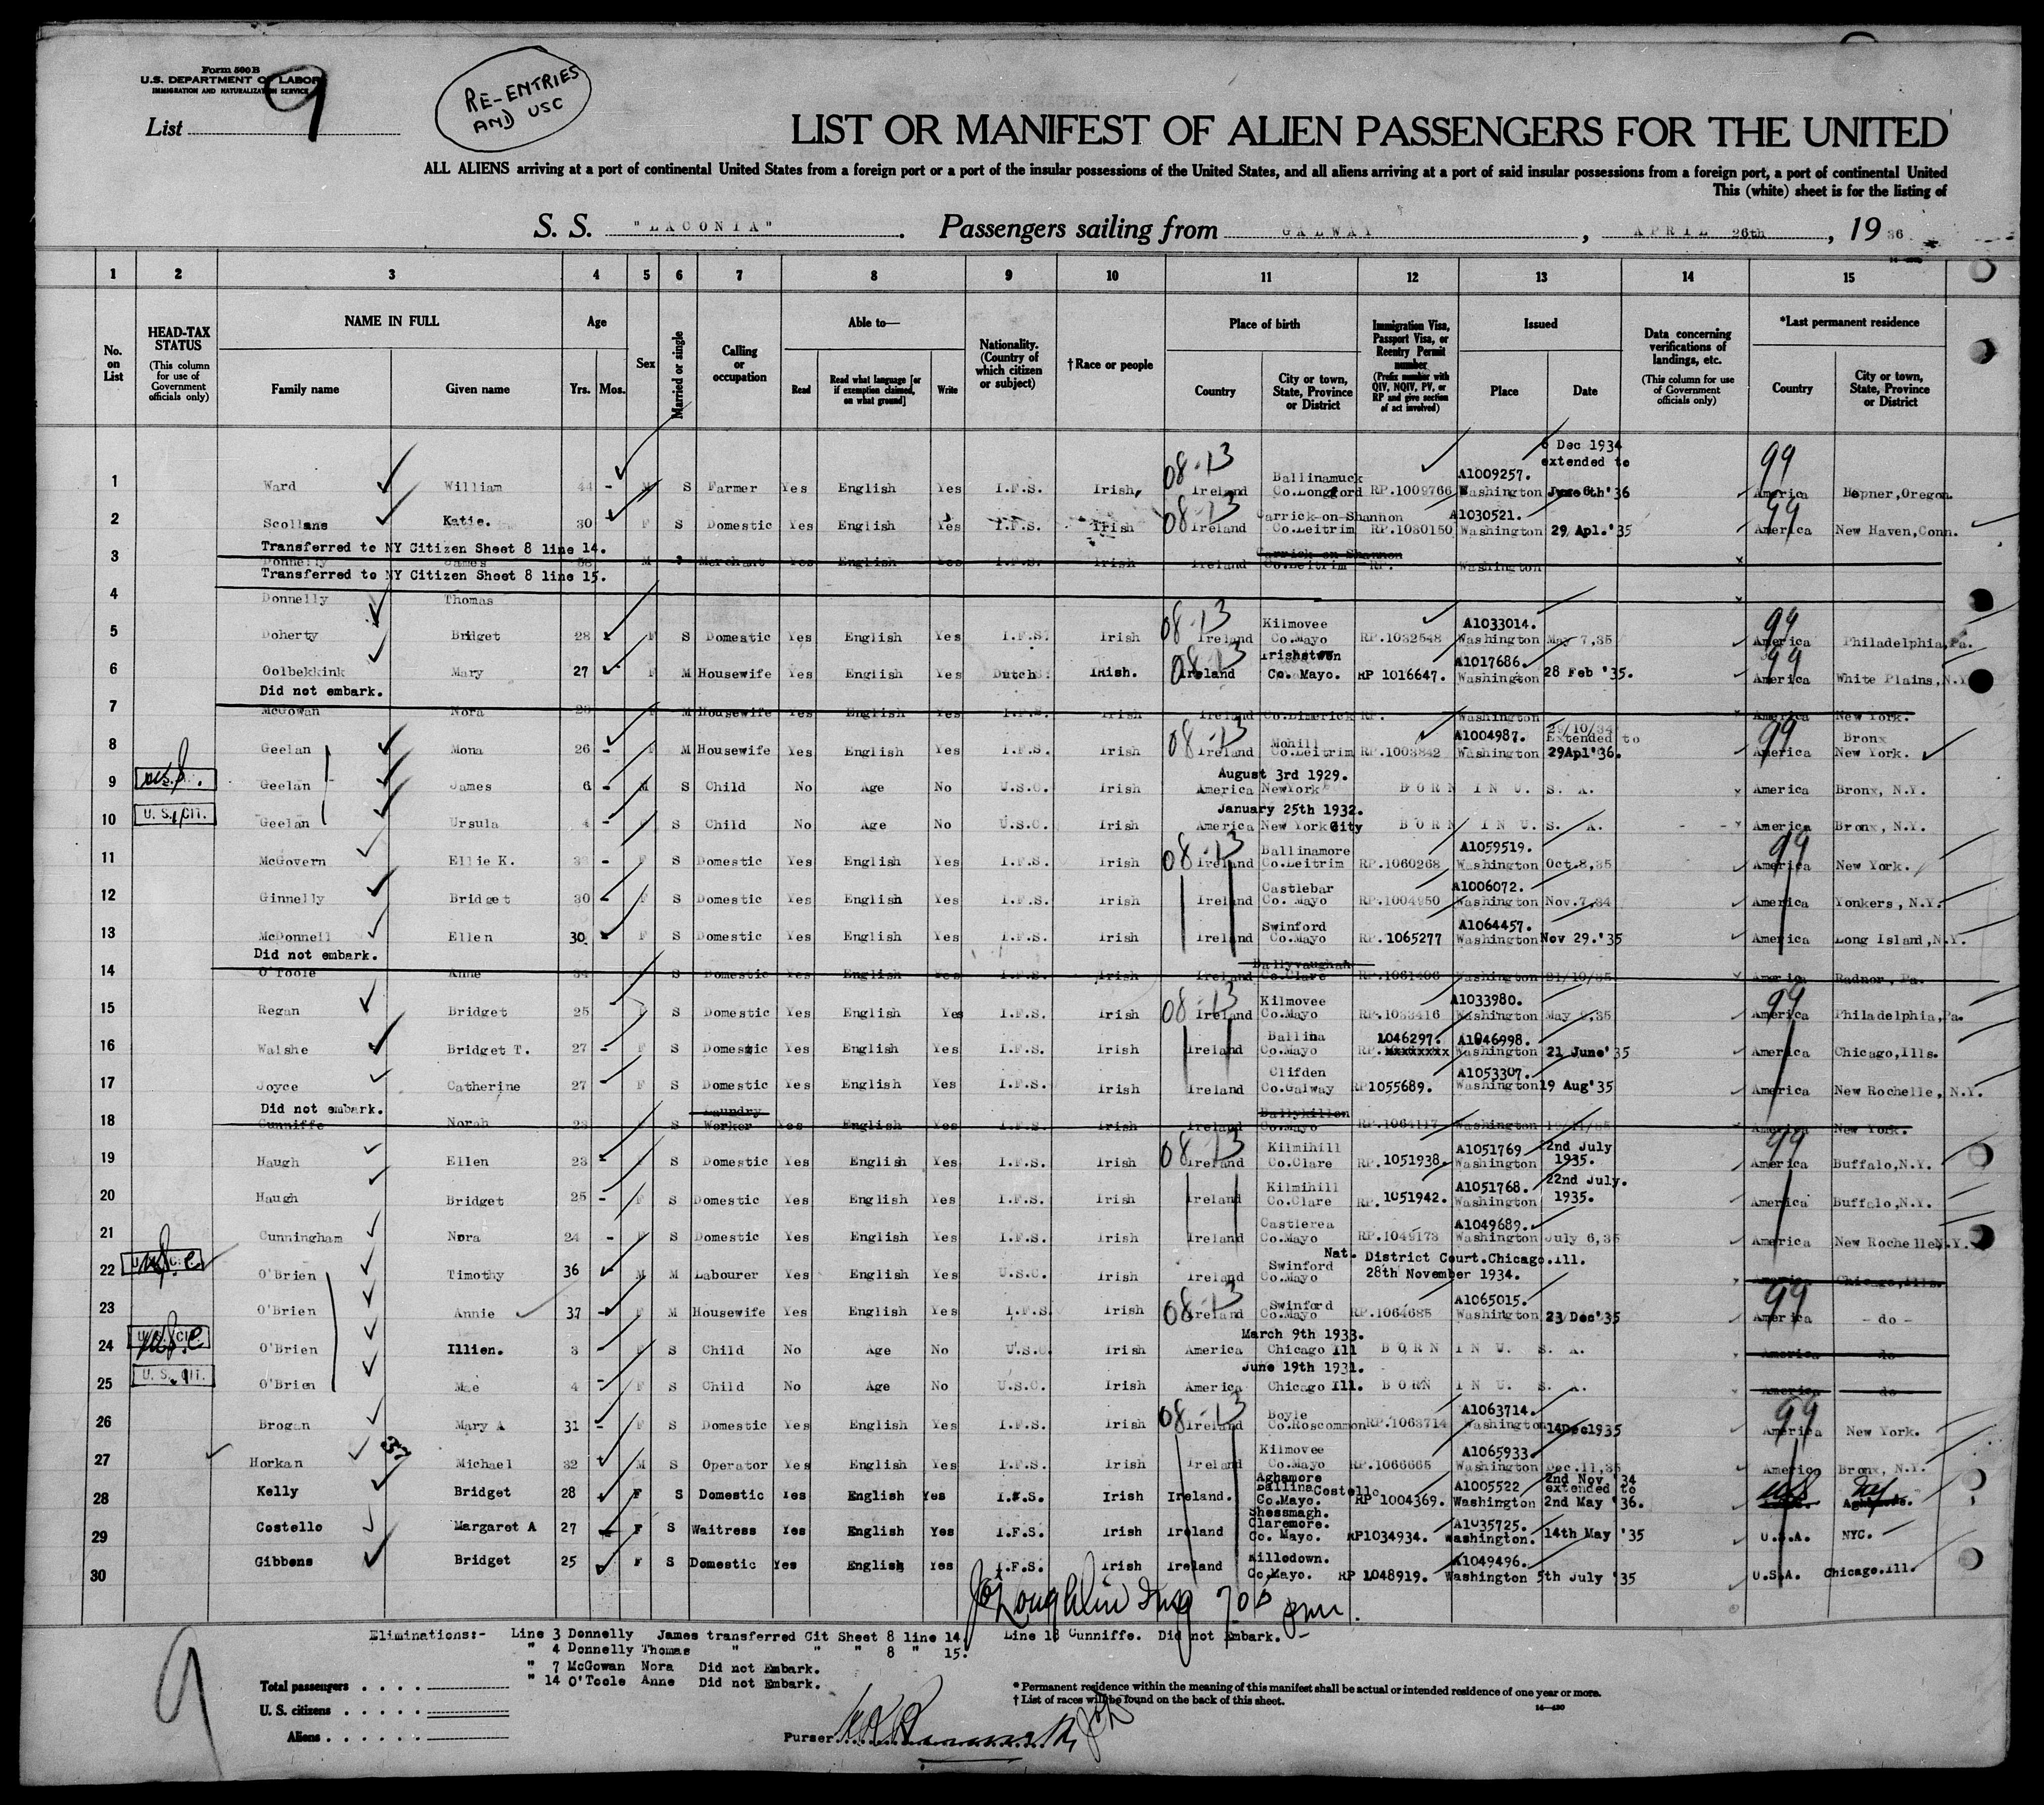 Form 500 B
U.S. DEPARTMENT OF LABOR
IMMIGRATION AND NATURALIZATION SERVICE
List 9
RE-ENTRIES AND USC
LIST OR MANIFEST OF ALIEN PASSENGERS FOR THE UNITED
ALL ALIENS arriving at a port of continental United States from a foreign port or a port of the insular possessions of the United States, and all aliens arriving at a port of said insular possessions from a foreign port, a port of continental United
This (white) sheet is for the listing of
S. S. "LACONIA". Passengers sailing from GALWAY, APRIL 26th, 1936
1 2 3 4 5 6 7 8 9 10 11 12 13 14 15
No. on List
HEAD-TAX STATUS (This column for use of Government officials only)
NAME IN FULL Family name Given name
Age Yrs. Mos.
Sex
Married or single
Calling or occupation
Able to— Read Read what language [or if exemption claimed, on what ground] Write
Nationality. (Country of which citizen or subject)
† Race or people
Place of birth Country City or town, State, Province or District
Immigration Visa, Passport Visa, or Reentry Permit number (Prefix number with QIV, NQIV, PV, or RP and give section of act involved)
Issued Place Date
Data concerning verifications of landings, etc. (This column for use of Government officials only)
*Last permanent residence Country City or town, State, Province or District
1 Ward William 44 - M S Farmer Yes English Yes I.F.S. Irish, 08-13 Ireland Ballinamuck Co.Longford RP.1009766 A1009257. Washington 6 Dec 1934 extended to June 6th'36 99 America Hepner,Oregon.
2 Scollans Katie. 30 F S Domestic Yes English Yes I.F.S. Irish 08-13 Ireland Carrick-on-Shannon Co.Leitrim RP.1030150 A1030521. Washington 29 Apl.'35 99 America New Haven,Conn.
Transferred to NY Citizen Sheet 8 line 14.
3 Donnelly James M Merchant Yes English Yes I.F.S. Irish Ireland Carrick-on-Shannon Co.Leitrim RP. Washington
Transferred to NY Citizen Sheet 8 line 15.
4 Donnelly Thomas
5 Doherty Bridget 28 F S Domestic Yes English Yes I.F.S. Irish 08-13 Ireland Kilmovee Co.Mayo RP.1032548 A1033014. Washington May 7,35 99 America Philadelphia,Pa.
6 Oolbekkink Mary 27 F M Housewife Yes English Yes Dutch Irish. 08-13 Ireland Irishtown Co. Mayo. RP 1016647. A1017686. Washington 28 Feb '35. 99 America White Plains,N.Y
Did not embark.
7 McGowan Nora F M Housewife Yes English Yes I.F.S. Irish Ireland Co.Limerick RP. Washington America New York.
8 Geelan Mona 26 - F M Housewife Yes English Yes I.F.S. Irish 08-13 Ireland Mohill Co.Leitrim RP.1003842 A1004987. Washington 29/10/34 Extended to 29Apl'36. 99 America Bronx New York.
9 Geelan James 6 - M S Child No Age No U.S.C. Irish August 3rd 1929. America NewYork BORN IN U. S. A. America Bronx, N.Y.
10 U. S. CIT. Geelan Ursula 4 - S Child No Age No U.S.C. Irish January 25th 1932. America New York City BORN IN U. S. A. America Bronx, N.Y.
11 McGovern Ellie K. - F S Domestic Yes English Yes I.F.S. Irish 08-13 Ireland Ballinamore Co.Leitrim RP.1060268 A1059519. Washington Oct.8,35 99 America New York.
12 Ginnelly Bridget 30 F S Domestic Yes English Yes I.F.S. Irish Ireland Castlebar Co. Mayo RP.1004950 A1006072. Washington Nov.7,34 America Yonkers, N.Y.
13 McDonnell Ellen 30 F S Domestic Yes English Yes I.F.S. Irish Ireland Swinford Co.Mayo RP.1065277 A1064457. Washington Nov 29.'35 America Long Island,N.Y.
Did not embark.
14 O'Toole Anne 34 S Domestic Yes English Yes I.F.S. Irish Ireland Ballyvaughan Co.Clare RP.1061406 Washington 21/10/35 America Radnor, Pa.
15 Regan Bridget 25 S Domestic Yes English Yes I.F.S. Irish 08-13 Ireland Kilmovee Co.Mayo RP.1033416 A1033980. Washington May ,35 99 America Philadelphia,Pa.
16 Walshe Bridget T. 27 - F S Domestic Yes English Yes I.F.S. Irish Ireland Ballina Co.Mayo 1046297. RP.xxxxxxxx A1046998. Washington 21 June'35 America Chicago,Ills.
17 Joyce Catherine 27 F S Domestic Yes English Yes I.F.S. Irish Ireland Clifden Co.Galway RP1055689. A1053307. Washington 19 Aug'35 America New Rochelle, N.Y.
Did not embark.
18 Cunniffe Norah 23 S Laundry Worker Yes English Yes I.F.S. Irish Ireland Co.Mayo RP.1064117 Washington America New York.
19 Haugh Ellen 23 S Domestic Yes English Yes I.F.S. Irish 08-13 Ireland Kilmihill Co.Clare RP.1051938. A1051769 Washington 22nd July 1935. 99 America Buffalo,N.Y.
20 Haugh Bridget 25 - F S Domestic Yes English Yes I.F.S. Irish Ireland Kilmihill Co.Clare RP.1051942. A1051768. Washington 22nd July. 1935. America Buffalo,N.Y.
21 Cunningham Nora 24 - F S Domestic Yes English Yes I.F.S. Irish Ireland Castlerea Co.Mayo RP.1049173 A1049689. Washington July 6,35 America New Rochelle,N.Y.
22 O'Brien Timothy 36 M M Labourer Yes English Yes U.S.C. Irish Ireland Swinford Co.Mayo Nat. District Court.Chicago.Ill. 28th November 1934. America Chicago,Ills.
23 O'Brien Annie 37 F M Housewife Yes English Yes I.F.S. Irish 08-13 Ireland Swinford Co.Mayo RP.1064685 A1065015. Washington 23 Dec'35 99 America - do -
24 U. S. CIT. O'Brien Illien. 3 F S Child No Age No U.S.C. Irish March 9th 1933. America Chicago Ill BORN IN U. S. A. America do
25 U. S. CIT. O'Brien Mae 4 F S Child No Age No U.S.C. Irish June 19th 1931. America Chicago Ill. BORN IN U. S. A. America do
26 Brogan Mary A 31 - F S Domestic Yes English Yes I.F.S. Irish 08-13 Ireland Boyle Co.Roscommon RP.1063714 A1063714. Washington 14Dec1935 99 America New York.
27 Horkan Michael 32 M S Operator Yes English Yes I.F.S. Irish Ireland Kilmovee Co.Mayo RP.1066665 A1065933. Washington Dec.11,35 America Bronx, N.Y.
28 Kelly Bridget 28 F S Domestic Yes English Yes I.F.S. Irish Ireland. Aghamore Ballina Costello Co.Mayo. RP 1004369. A1005522 Washington 2nd Nov '34 extended to 2nd May '36.
29 Costello Margaret A 27 F S Waitress Yes English Yes I.F.S. Irish Ireland Shessmagh. Claremore. Co. Mayo. RP1034934. A1035725. Washington. 14th May '35 U.S.A. NYC.
30 Gibbons Bridget 25 F S Domestic Yes English Yes I.F.S. Irish Ireland Killodown. Co.Mayo. RP 1048919. A1049496. Washington 5th July '35 U.S.A. Chicago.Ill.
Eliminations:- Line 3 Donnelly James transferred Cit Sheet 8 line 14. Line 18 Cunniffe. Did not Embark.
" 4 Donnelly Thomas " " " 8 " 15.
" 7 McGowan Nora Did not Embark.
" 14 O'Toole Anne Did not Embark.
9
Total passengers
U. S. citizens
Aliens
Purser
* Permanent residence within the meaning of this manifest shall be actual or intended residence of one year or more.
† List of races will be found on the back of this sheet.